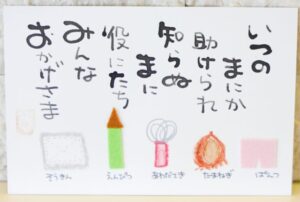 いつの
まにか
助けられ
知らぬ
まに
役にたち
みんな
おかげさま
ぞうきん
えんぴつ
あわだてき
たまねぎ
ぱんつ